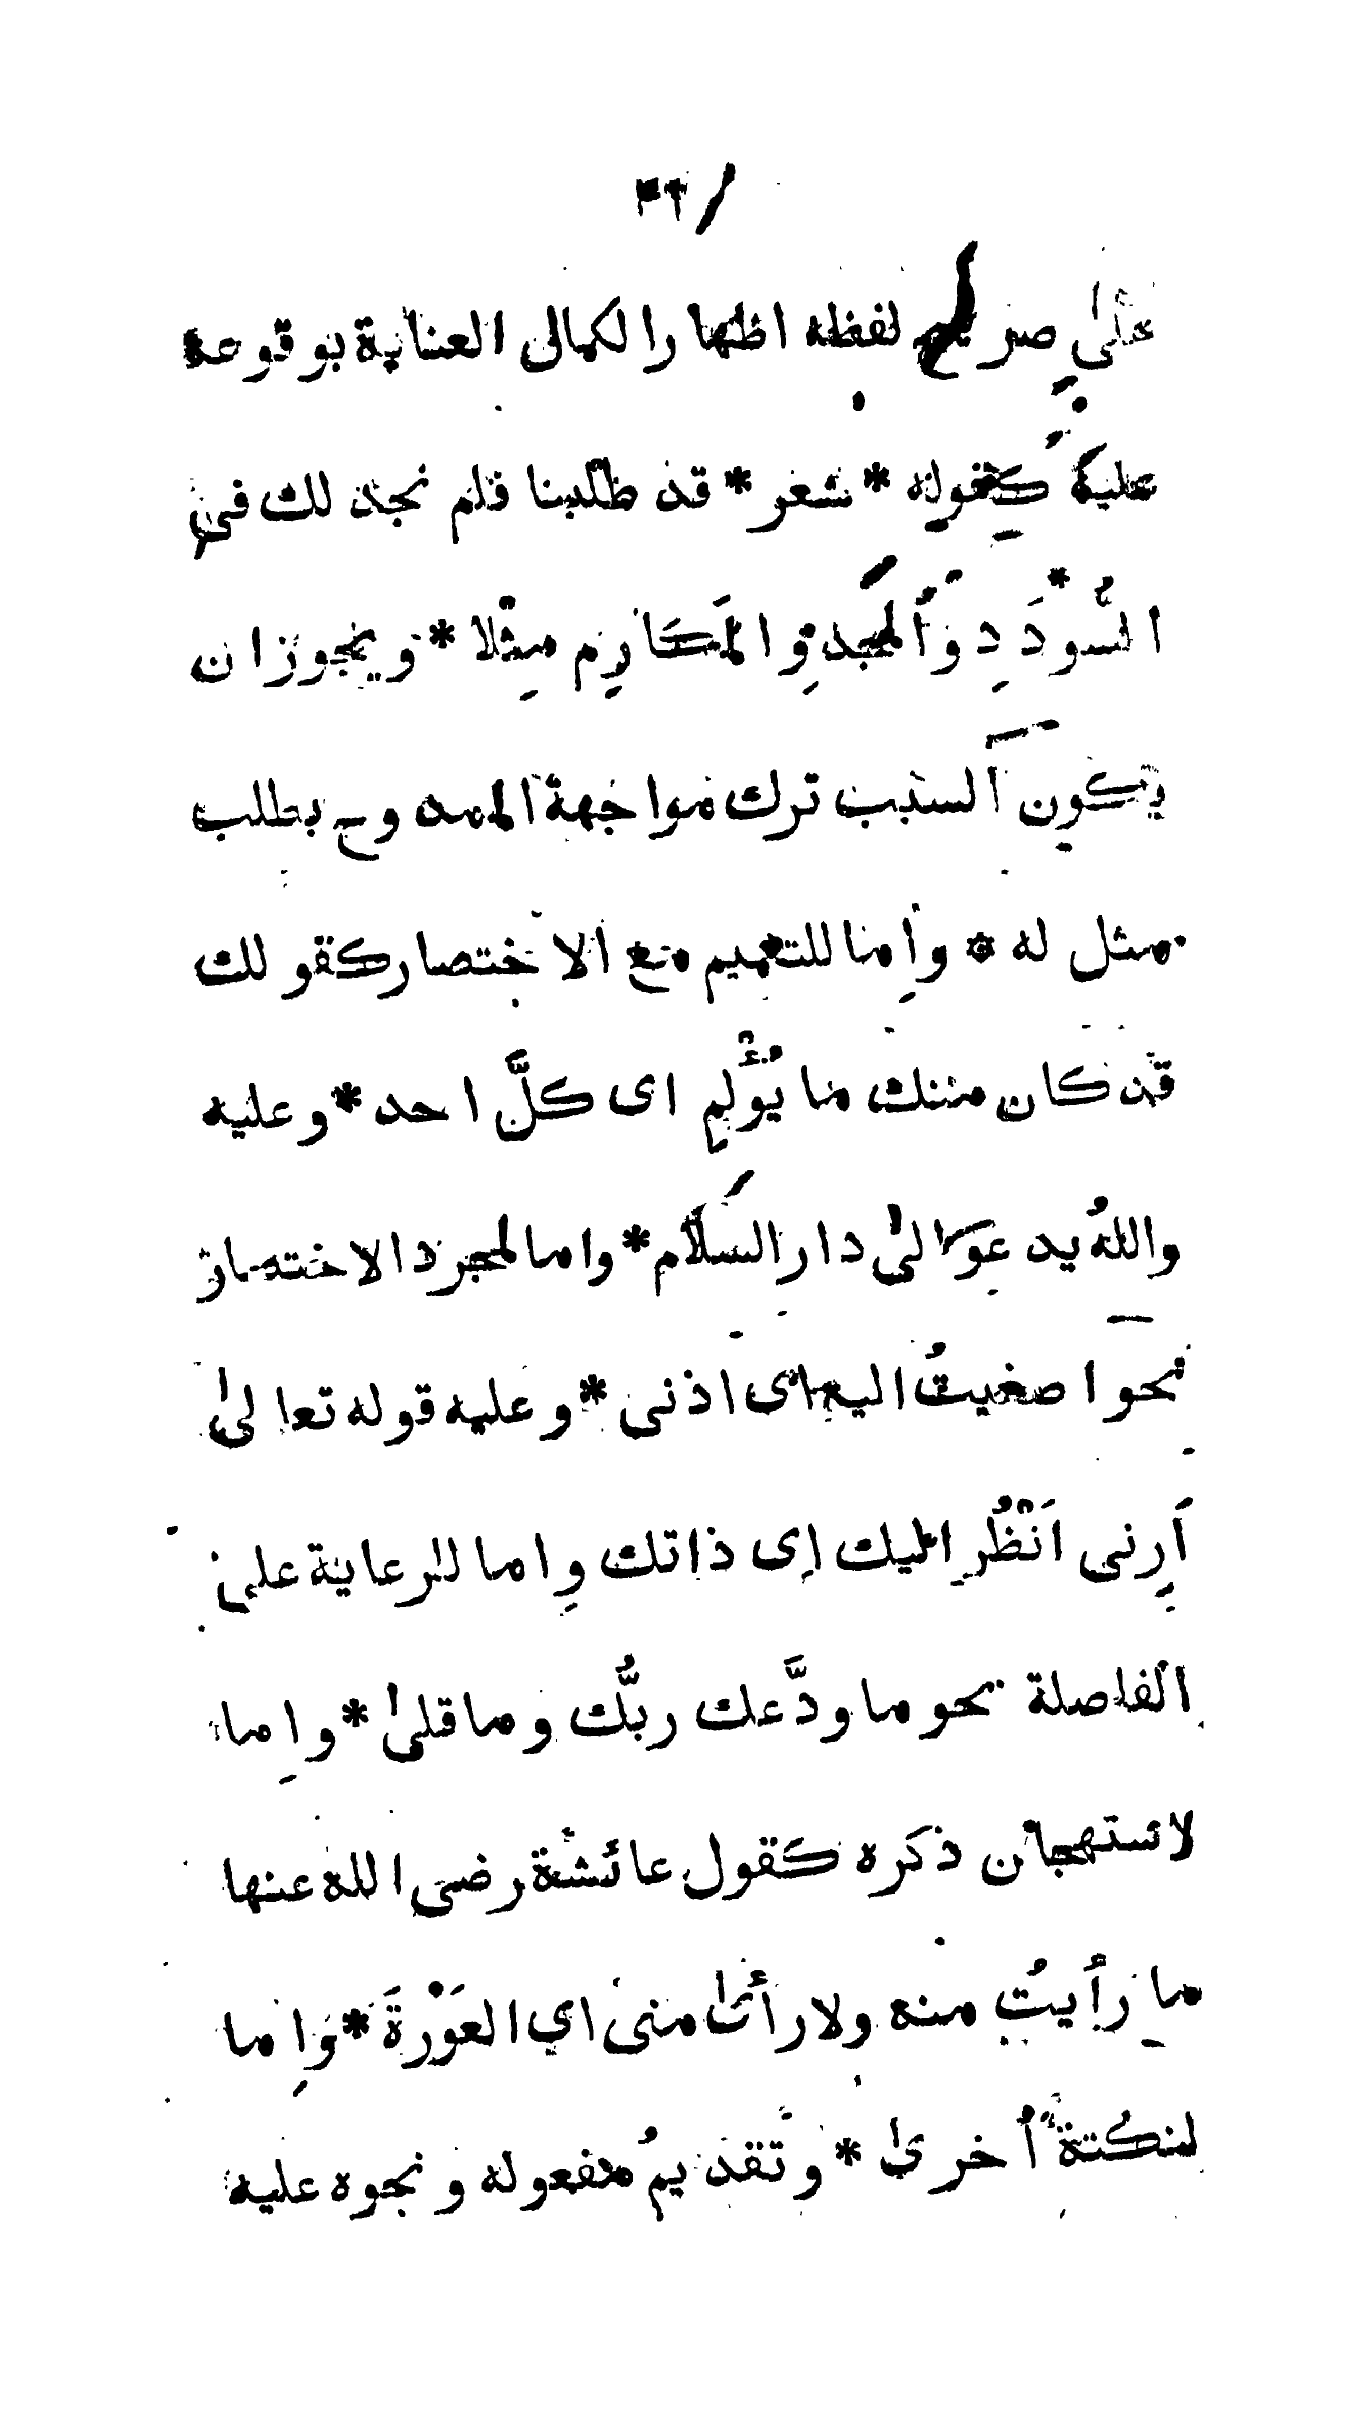 على صريح لفظه اظهارا لكمال العناية بوقوعه
عليه كقوله * شعر * قد طلبنا فلم نجد لك فى
السُّودَدِ وَالمجدِ والمَكارِمِ مِثْلا * ويجوزان
يكون السبب ترك مواجهة الممدوح بطلب
مثل له * واِما للتعميم مع الاختصار كقولك
قد كان منك ما يُؤْلِم اى كلَّ احد * وعليه
واللهُ يدعوا الىٰ دار السَلام * واما لمجرد الاختصار
نحو اصغيتُ اليه اى اذنى * وعليه قوله تعالىٰ
اَرِنى اَنْظُرِ اليك اى ذاتك واِما للرعاية على
الفاصلة نحو ما ودَّعك ربُّك وما قلىٰ * واِما
لاستهجان ذكره كقول عائشة رضى الله عنها
ما رأيتُ منه ولا رأىٰ منى اي العَوْرةَ * وَاِما
لنكتة اُخرىٰ * وتقديمُ مفعوله ونحوه عليه